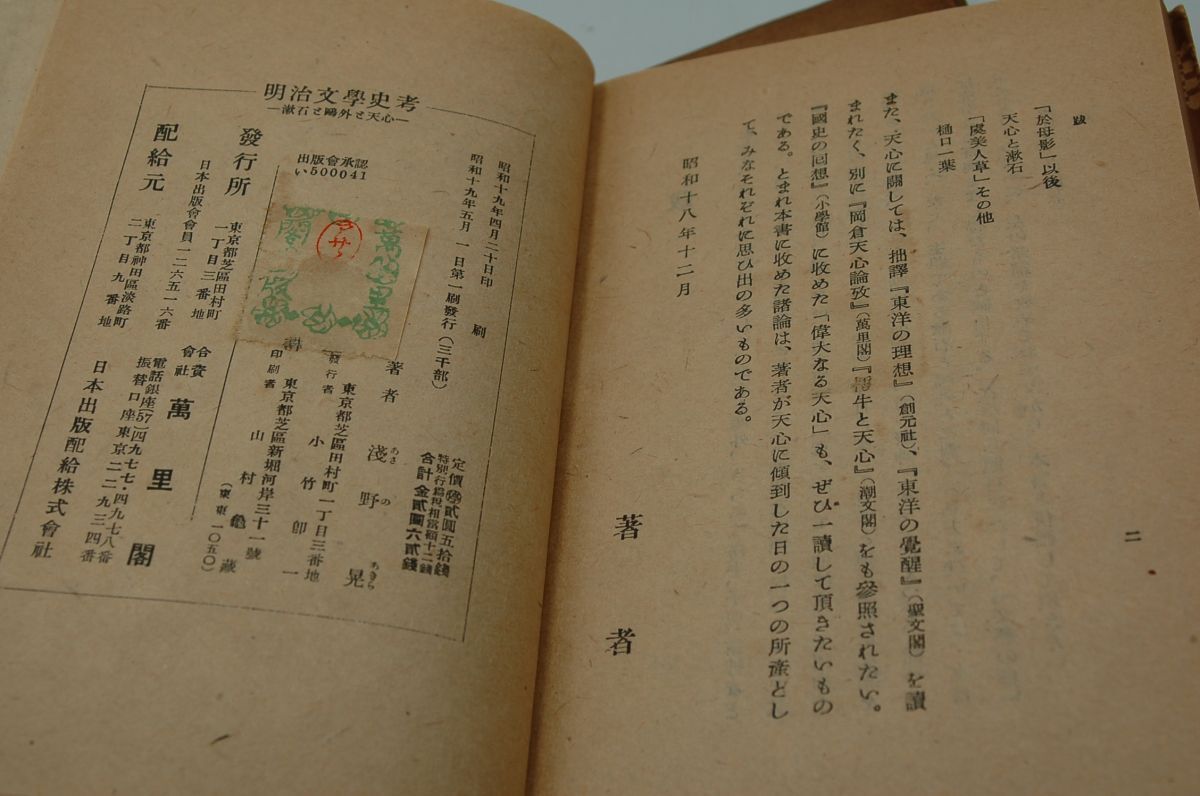 跋
二
「於母影」以後
天心と漱石
「虞美人草」その他
樋口一葉
また、天心に關しては、拙譯『東洋の理想』(創元社)、『東洋の覺醒』(聖文閣)を讀
まれたく、別に『岡倉天心論攷』(萬里閣)『樗牛と天心』(潮文閣)をも參照されたい。
『國史の回想』(小學館)に收めた「偉大なる天心」も、ぜひ一讀して頂きたいもの
である。とまれ本書に收めた諸論は、著者が天心に傾到した日の一つの所產とし
て、みなそれぞれに思ひ出の多いものである。
昭和十八年十二月
著者
明治文學史考
―漱石と鷗外と天心―
定價㊞貳圓五拾錢
特別行爲稅相當額十二錢
合計金貳圓六貳錢
昭和十九年四月二十日印刷
昭和十九年五月一日第一刷發行(三千部)
出版會承認
い500041
著者 淺野晃
あさ の あきら
東京都芝區田村町一丁目三番地
發行者 小竹卽一
東京都芝區新堀河岸三十一號
印刷者 山村龜藏
(東東一〇五〇)
發行所
東京都芝區田村町
一丁目三番地
日本出版會會員一二六五一六番
合資會社 萬里閣
電話銀座(57)四九七七・四九七八番
振替口座東京二二九三四番
配給元
東京都神田區淡路町
二丁目九番地
日本出版配給株式會社